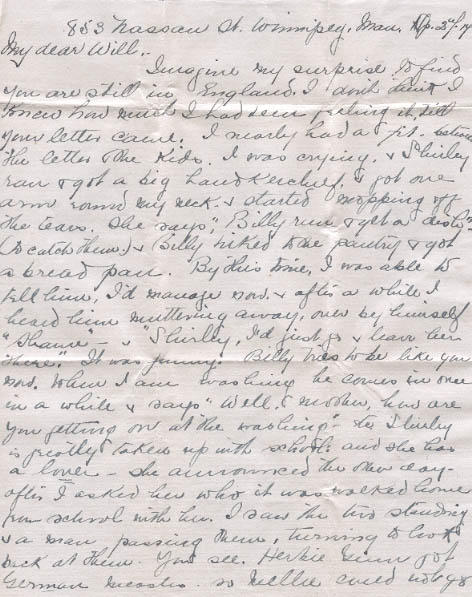 853 Nassau St. Winnipeg, Man. Ap. 3rd/
My dear Will,.
Imagine my surprise to find
you are still in England. I don't think I
knew how much I had been feeling it, till
your letter came. I nearly had a fit. between
the letter & the kids. I was crying, & Shirley
ran & got a big handkerchief, & got one
arm round my neck & started mopping off
the tears. She says, "Billy run & get a dish"
(to catch them) & Billy hiked to the pantry & got
a bread pan. By this time, I was able to
tell him, I'd manage now. & after a while I
heard him muttering away, over by himself
"Shame - & "Shirley, I'd just go & leave her
there." It was funny. Billy tries to be like you
now. When I am washing he comes in once
in a while & says "Well, mother, how are
you getting on at the washing"- Shirley
is greatly taken up with school: and she has
a lover - she announced the other day-
after I asked her who it was walked home
from school with her. I saw the two standing
& a man passing them, turning to look
back at them. You see, Herkie Gunn got
German measles. so Nellie could not go